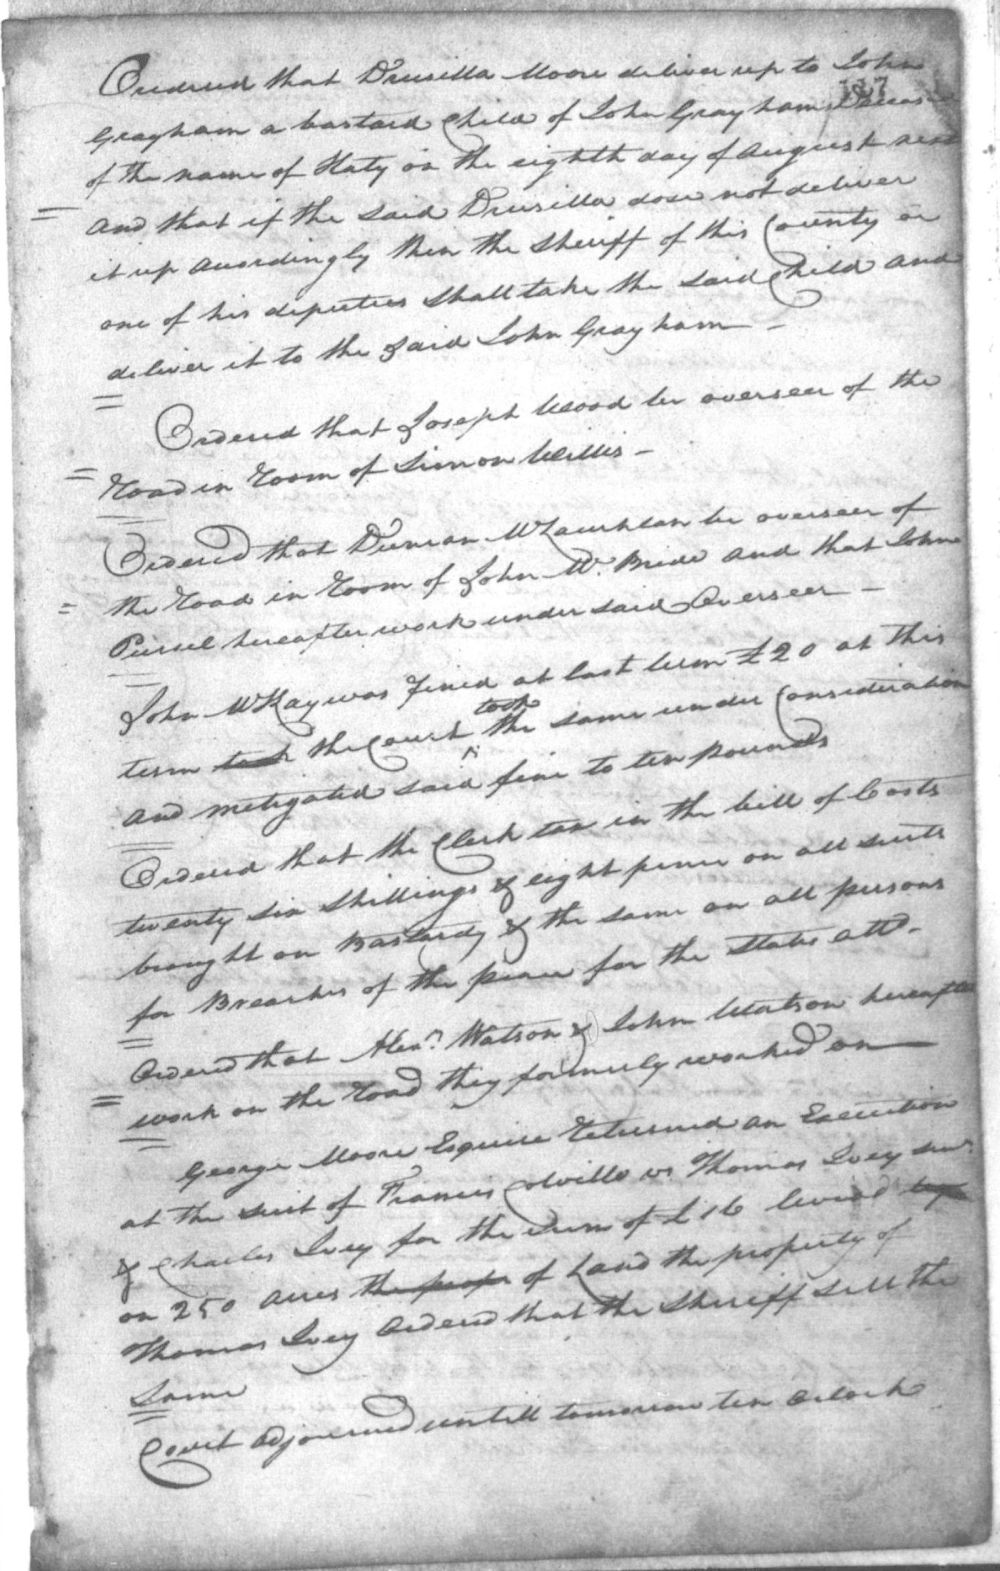 137
Ordered that Drusilla Moore deliver up to John
Grayham a bastard Child of John Grayham Deceased
of the name of Katy on the eighth day of August next
And that if the said Drusilla dose not deliver
it up Accordingly then the Sheriff of this County or
one of his deputies Shall take the Said Child and
deliver it to the Said John Grayham —
Ordered that Joseph Wood be overseer of the
Road in Room of Simon Willis —
Ordered that Duncan McLauchlan be overseer of
the Road in Room of John Mc. Bride And that John
hereafter work under said Overseer —
John McKay was Fined at last term £20 at this
term took the Court took the same under Consideration
And metigated said fine to ten pounds
Ordered that the Clerk tax in the bill of Costs
twenty six Shillings & eight pence on all suits
brought on Bastardy & the same on all persons
for Breaches of the peace for the States
Ordered that Alexr. Watson & John Watson hereafter
work on the Road they formerly worked on —
George Moore Esquire Returned an Execution
at the suit of Francis Colville vs Thomas Ivey senr.
& Charles Ivey for the Sum of £16 levied
on 250 Acres the prope of Land the property of
Thomas Ivey Ordered that the Sheriff Sell the
Same
Court Adjourned untill tomorrow ten Oclock